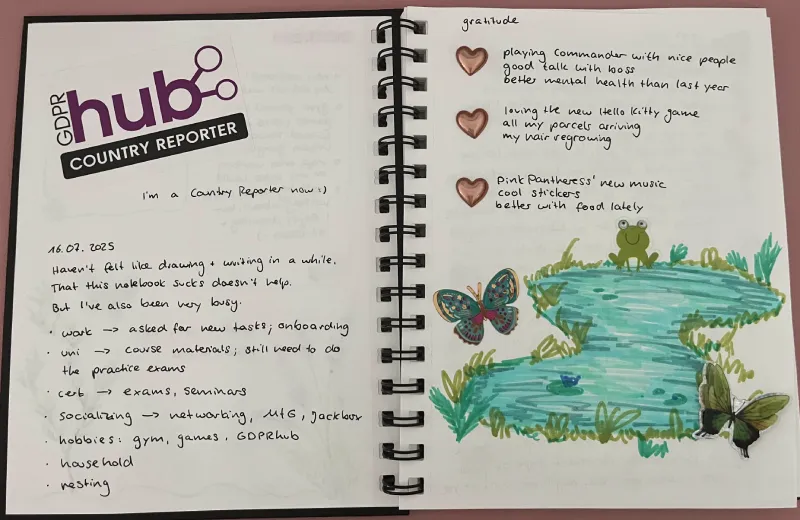 GDPR
hub
COUNTRY REPORTER
I'm a Country Reporter now :)
16.07.2025
Haven't felt like drawing + writing in a while.
That this notebook sucks doesn't help.
But I've also been very busy.
· work -> asked for new tasks; onboarding
· uni -> course materials; still need to do
the practice exams
· cert -> exams, seminars
· socializing -> networking, MtG, Jackbox
· hobbies: gym, games, GDPRhub
· household
· resting
gratitude
playing Commander with nice people
good talk with boss
better mental health than last year
loving the new Hello Kitty game
all my parcels arriving
my hair regrowing
PinkPantheress' new music
cool stickers
better with food lately